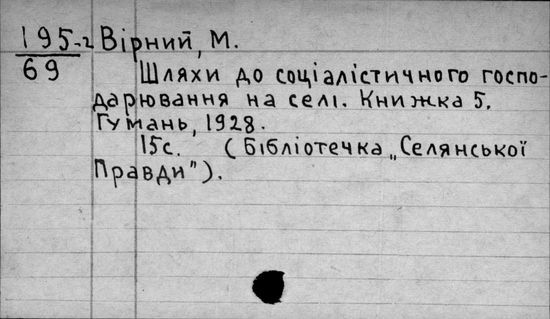 195-2 Вірний, М.
69
Шляхи до соціалістичного госпо-
дарювання на селі. Книжка 5.
Гумань, 1928.
15с. (Бібліотечка „Селянської
Правди").